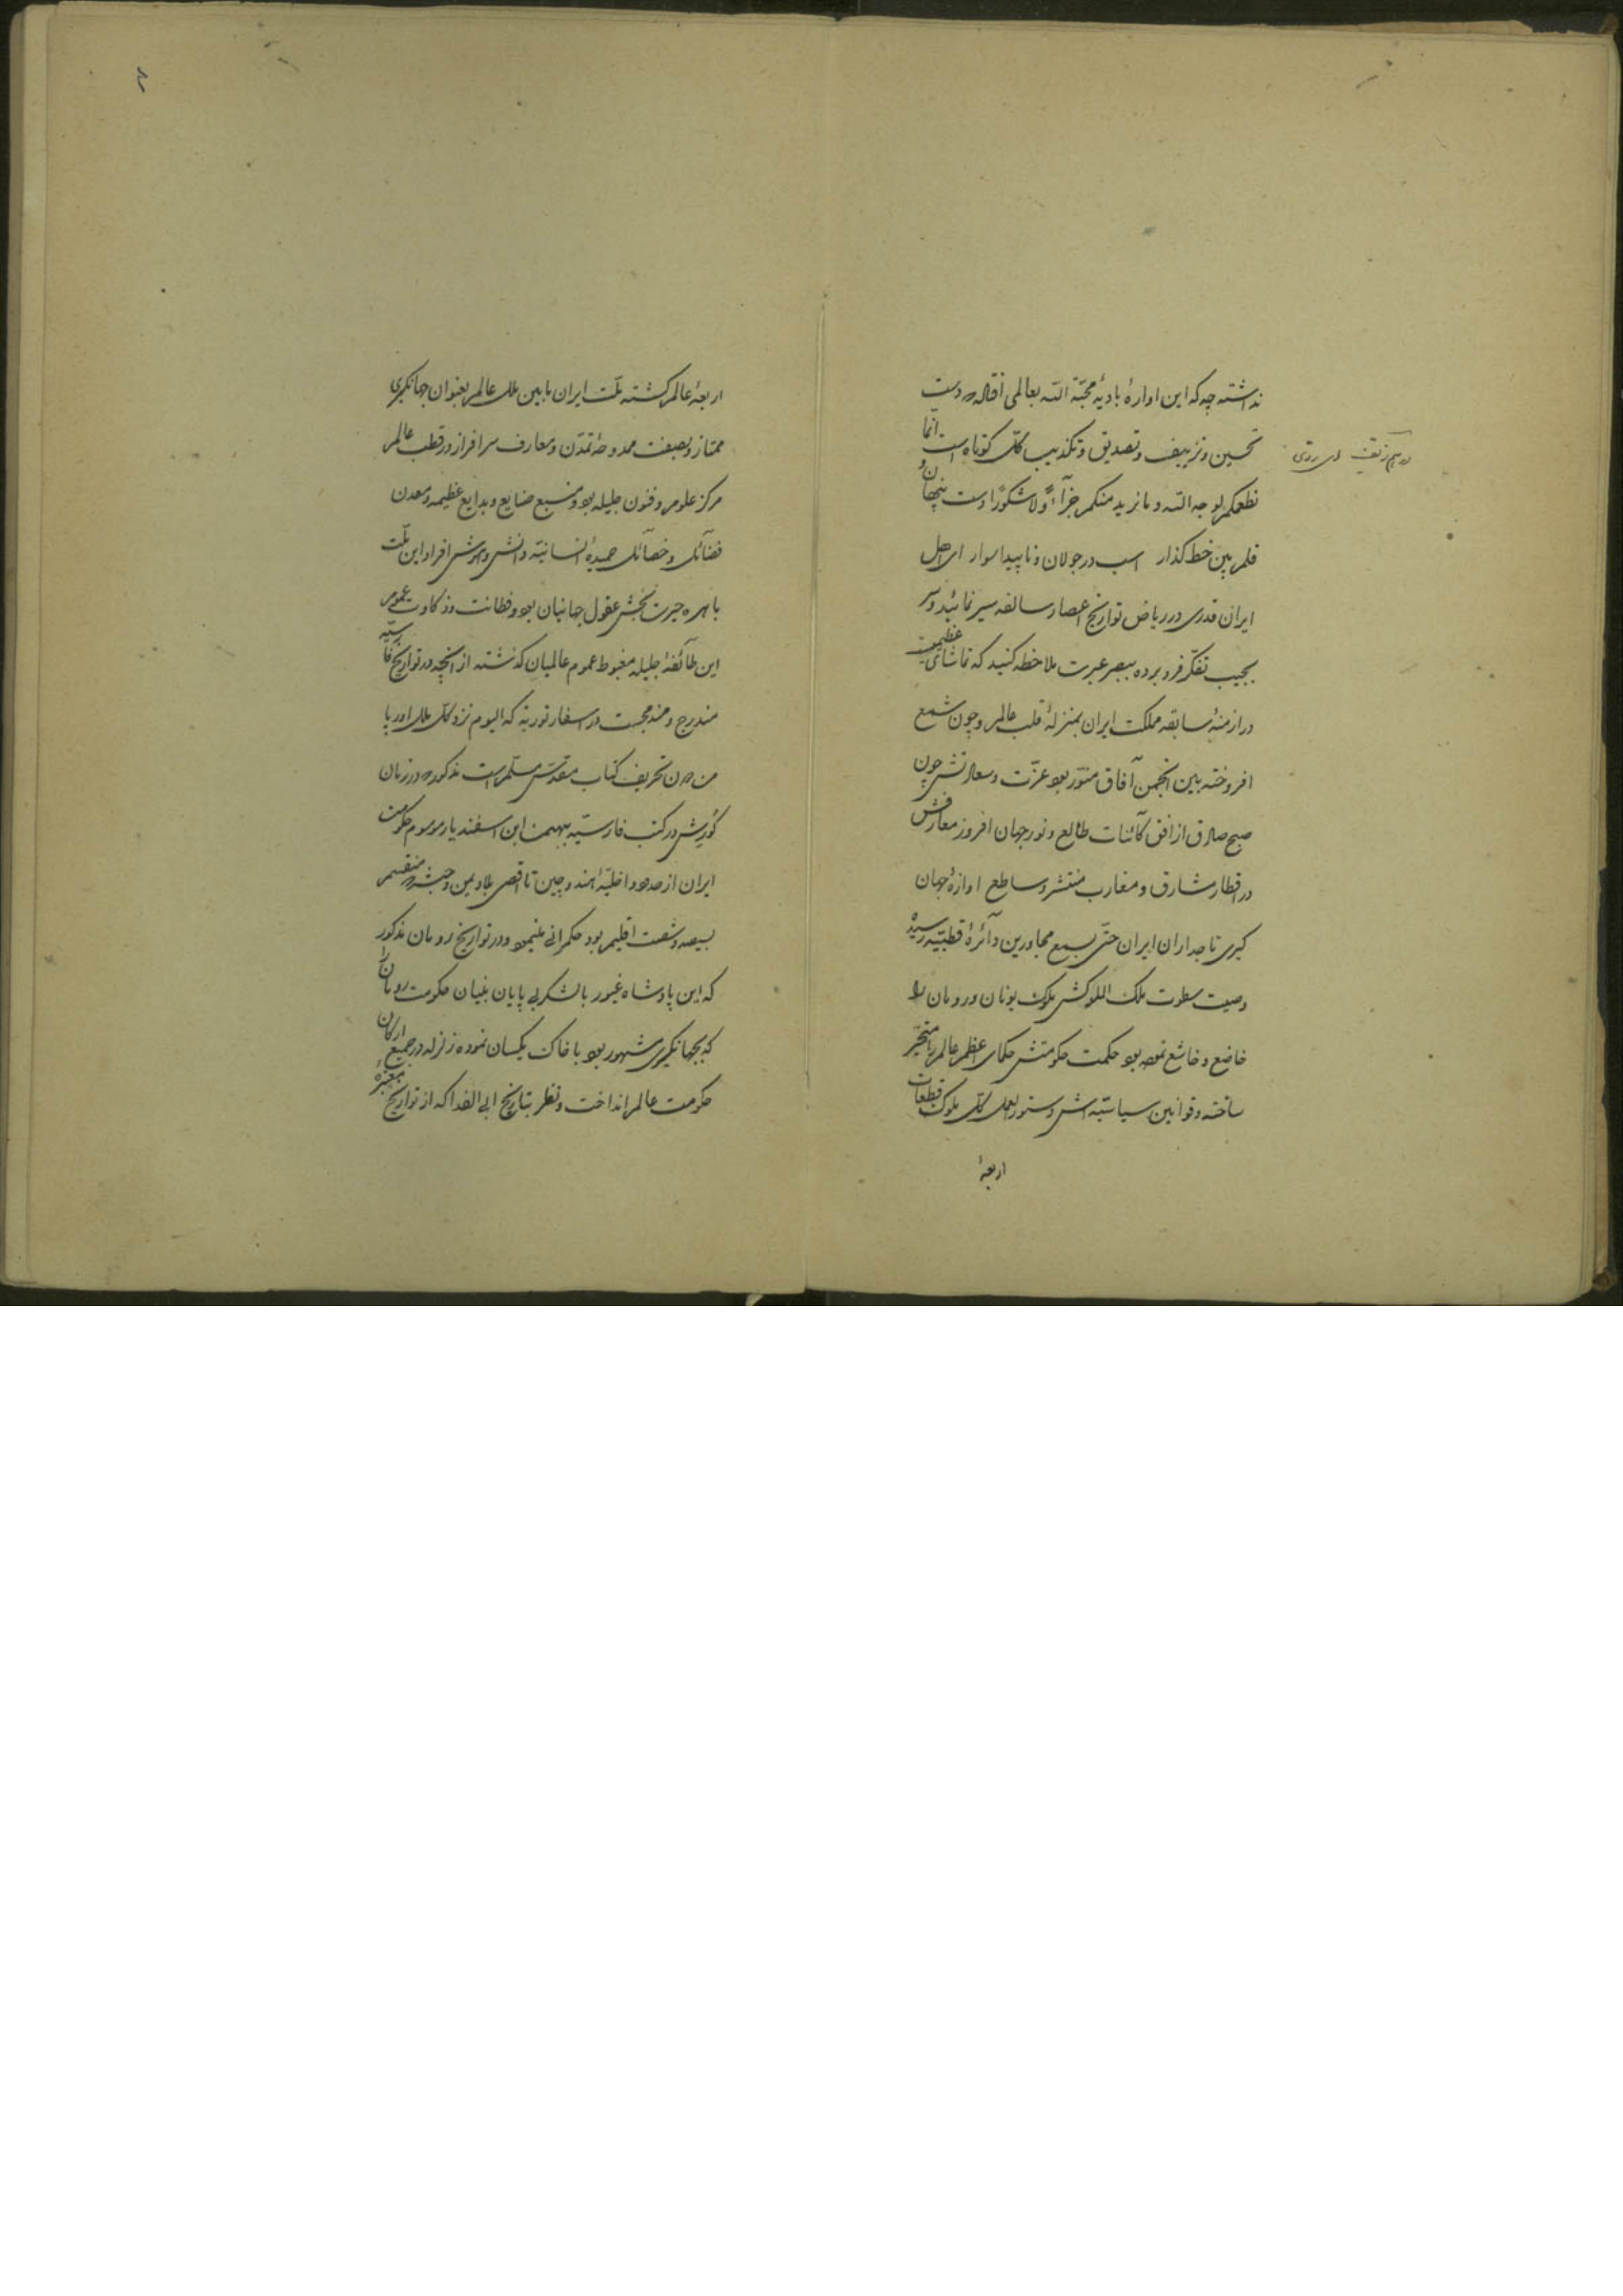 نداشته چه که این اوارهٔ بادیهٔ محبّة اللّه بعالمی افتاده که دست
تحسین و تزییف و تصدیق و تکذیب کلّ کوتاه است انما
نطعمکم لوجه اللّه و ما نرید منکم جزآءً و لا شکورًا دست پنهان و
قلم بین خط کذار اسب در جولان و ناپیدا سوار ای اهل
ایران قدری در ریاض تواریخ اعصار سالفه سیر نمائید و سر
بجیب تفکّر فرو برده ببصر عبرت ملاحظه کنید که تماشای عظیمیست
در ازمنهٔ سابقه مملکت ایران بمنزلهٔ قلب عالم و چون شمع
افروخته بین انجمن آفاق منوّر بود عزّت و سعادتش چون
صبح صادق از افق کآئنات طالع و نور جهان افروز معارفش
در اقطار مشارق و مغارب منتشر و ساطع اوازهٔ جهان
کیری تاجداران ایران حتّی بسمع مجاورین دآئرهٔ قطبیّه رسیده
وصیت سطوت ملک الملوکش ملوک یونان و رومان را
خاضع و خاشع نموده بود حکمت حکومتش حکمای اعظم عالم را متحیّر
ساخته و قوانین سیاسیّه اش دستور العمل کلّ ملوک قطعات
اربعهٔ
اربعهٔ عالم کشته ملّت ایران مابین ملل عالم بعنوان جهانکیری
ممتاز و بصفت ممدوحهٔ تمدّن و معارف سرافراز در قطب عالم
مرکز علوم و فنون جلیله بود و منبع صنایع و بدایع عظیمه و معدن
فضآئل و خصآئل حمیدهٔ انسانیّه دانش و هوش افراد این ملّت
باهره حیرت بخش عقول جهانیان بود و فطانت و ذکاوت عموم
این طآئفهٔ جلیله مغبوط عموم عالمیان کذشته از انچه در تواریخ فارسیّه
مندرج و مندمجست در اسفار توریة که الیوم نزد کلّ ملل اوروپا
من دون تحریف کتاب مقدّس مسلّم است مذکور که در زمان
کورش در کتب فارسیّه ببهمن ابن اسفندیار موسوم حکومت
ایران از حدود داخلیّهٔ هند و چین تا اقصی بلاد یمن و حبشه که منقسم
بسیصد و شصت اقلیم بود حکمرانی مینمود و در تواریخ رومان مذکور
که این پادشاه غیور با لشکر بی پایان بنیان حکومت رومان را
که بجهانکیری مشهور بود با خاک یکسان نموده زلزله در جمیع ارکان
حکومت عالم انداخت و نظر بتاریخ ابی الفدا که از تواریخ معتبرهٔ